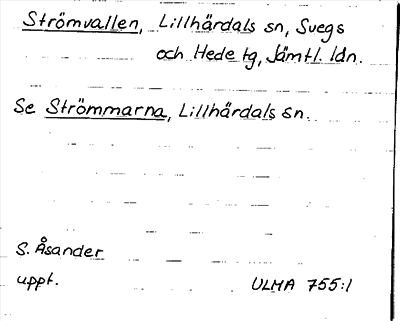 Strömvallen, Lillhärdals sn, Svegs
och Hede tg, Jämtl. ldn.
Se Strömmarna, Lillhärdals sn.
S. Åsander
uppt.
ULMA 755:1